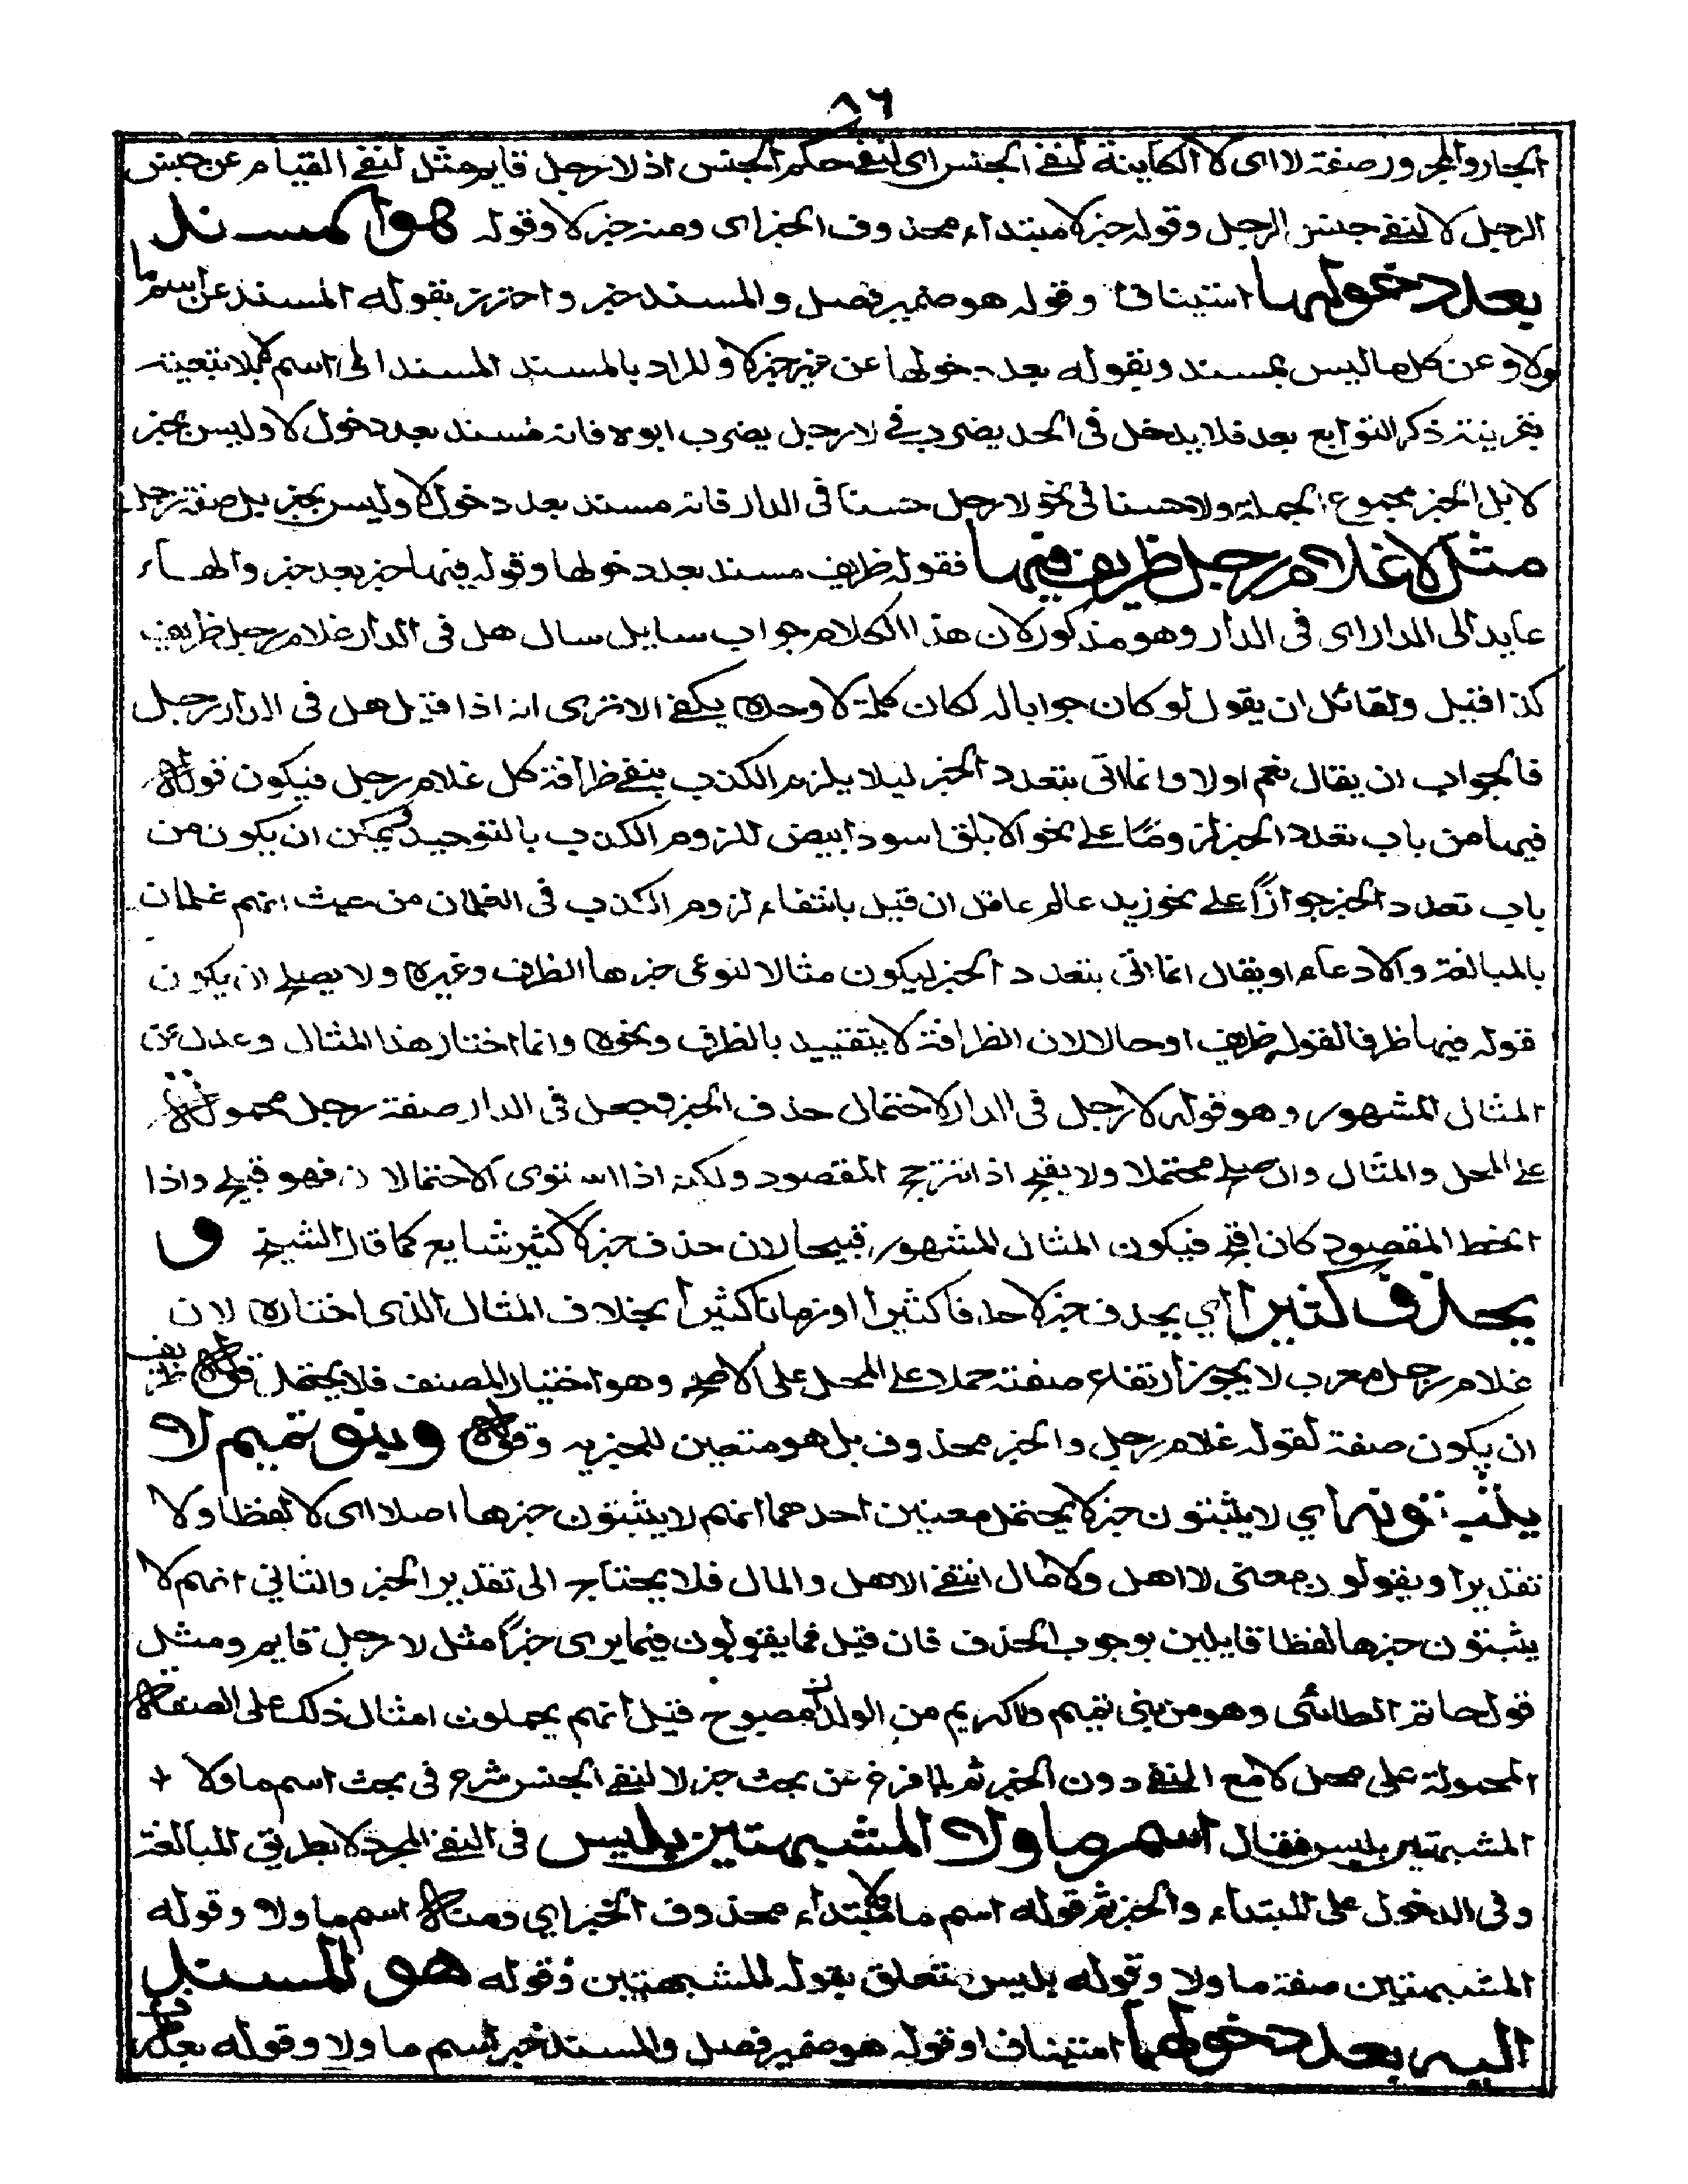 ٨٦
الجار والمجرور صفة لا اى لا الكاينة لنفى الجنس اى لنفى حكم الجنس اذ لا رجل قايم مثل لنفى القيام عن جنس
الرجل لا لنفى جنس الرجل وقوله خبر لا مبتداء محذوف الخبر اى ومنه خبر لا وقوله هو المسند
بعد دخولها استينافا وقوله هو ضمير فصل والمسند خبر واحترز بقوله المسند عن اسم ما
ولا وعن كل ما ليس بمسند وبقوله بعد دخولها عن غير خبر لا والمراد بالمسند المسند الى اسم لا بلا تبعية
بقرينة ذكر التوابع بعد فلا يدخل فى الحد يضرب فى لا رجل يضرب ابوه فانه مسند بعد دخول لا وليس بخبر
لا بل الخبر مجموع الجملة ولا حسنا فى نحو لا رجل حسنا فى الدار فانه مسند بعد دخول لا وليس بخبر بل صفة رجل
مثل لا غلام رجل ظريف فيها فقوله ظريف مسند بعد دخولها وقوله فيها خبر بعد خبر والهاء
عايد الى الدار اى فى الدار وهو مذكور لان هذا الكلام جواب سايل سال هل فى الدار غلام رجل ظريف
كذا قيل ولقائل ان يقول لو كان جوابا له لكان كلمة لا وحده يكفى الا ترى انه اذا قيل هل فى الدار رجل
فالجواب ان يقال نعم او لا وانما اتى بتعدد الخبر ليلا يلزم الكذب بنفى ظرافة كل غلام رجل فيكون قوله
فيها من باب تعدد الخبر لزوما على نحو الابلق اسود ابيض للزوم الكذب بالتوحيد ويمكن ان يكون من
باب تعدد الخبر جوازا على نحو زيد عالم عاقل ان قيل بانتفاء لزوم الكذب فى الغلمان من حيث انهم غلمان
بالمبالغة والادعاء او يقال انما اتى بتعدد الخبر ليكون مثالا لنوعى خبرها الظرف وغيره ولا يصلح ان يكون
قوله فيها ظرفا لقوله ظريف او حالا لان الظرافة لا يتقييد بالظرف ونحوه وانما اختار هذا المثال وعدل عن
المثال المشهور وهو قوله لا رجل فى الدار لاحتمال حذف الخبر وجعل فى الدار صفة رجل محمولة
على المحل والمثال وان صلح محتملا ولا يقبح اذا ترجح المقصود ولكنه اذا استوى الاحتمالان فهو قبيح واذا
انحط المقصود كان اقبح فيكون المثال المشهور قبيحا لان حذف خبر لا كثير شايع كما قال الشيخ و
يحذف كثيرا اي يحذف خبر لا حذفا كثيرا او زمانا كثيرا بخلاف المثال الذى اختاره لان
غلام رجل معرب لا يجوز ارتفاع صفته حملا على المحل على الاصح وهو اختيار المصنف فلا يحتمل قوله ظريف
ان يكون صفة لقوله غلام رجل والخبر محذوف بل هو متعين للخبرية وقوله وبنو تميم لا
يثبتونه اي لا يثبتون خبر لا يحتمل معنيين احدهما انهم لا يثبتون خبرها اصلا اى لا لفظا ولا
تقديرا ويقولون معنى لا اهل ولا مال انتفى الاهل والمال فلا يحتاج الى تقدير الخبر والثانى انهم لا
يثبتون خبرها لفظا قايلين بوجوب الحذف فان قيل فما يقولون فيما يرى خبرا مثل لا رجل قايم ومثل
قول حاتم الطائى وهو من بنى تميم ولا كريم من الولدان مصبوح قيل انهم يحملون امثال ذلك على الصفة
المحمولة على محل لا مع المنفى دون الخبر ثم لما فرغ عن بحث خبر لا لنفى الجنس شرع فى بحث اسم ما ولا
المشبهتين بليس فقال اسم ما ولا المشبهتين بليس فى النفى المجرد لا بطريق المبالغة
وفى الدخول على المبتداء والخبر ثم قوله اسم ما ولا مبتداء محذوف الخبر اي ومنه اسم ما ولا وقوله
المشبهتين صفة ما ولا وقوله بليس متعلق بقوله المشبهتين وقوله هو المسند
اليه بعد دخولهما استينافا وقوله هو ضمير فصل والمسند خبر اسم ما ولا وقوله بعد